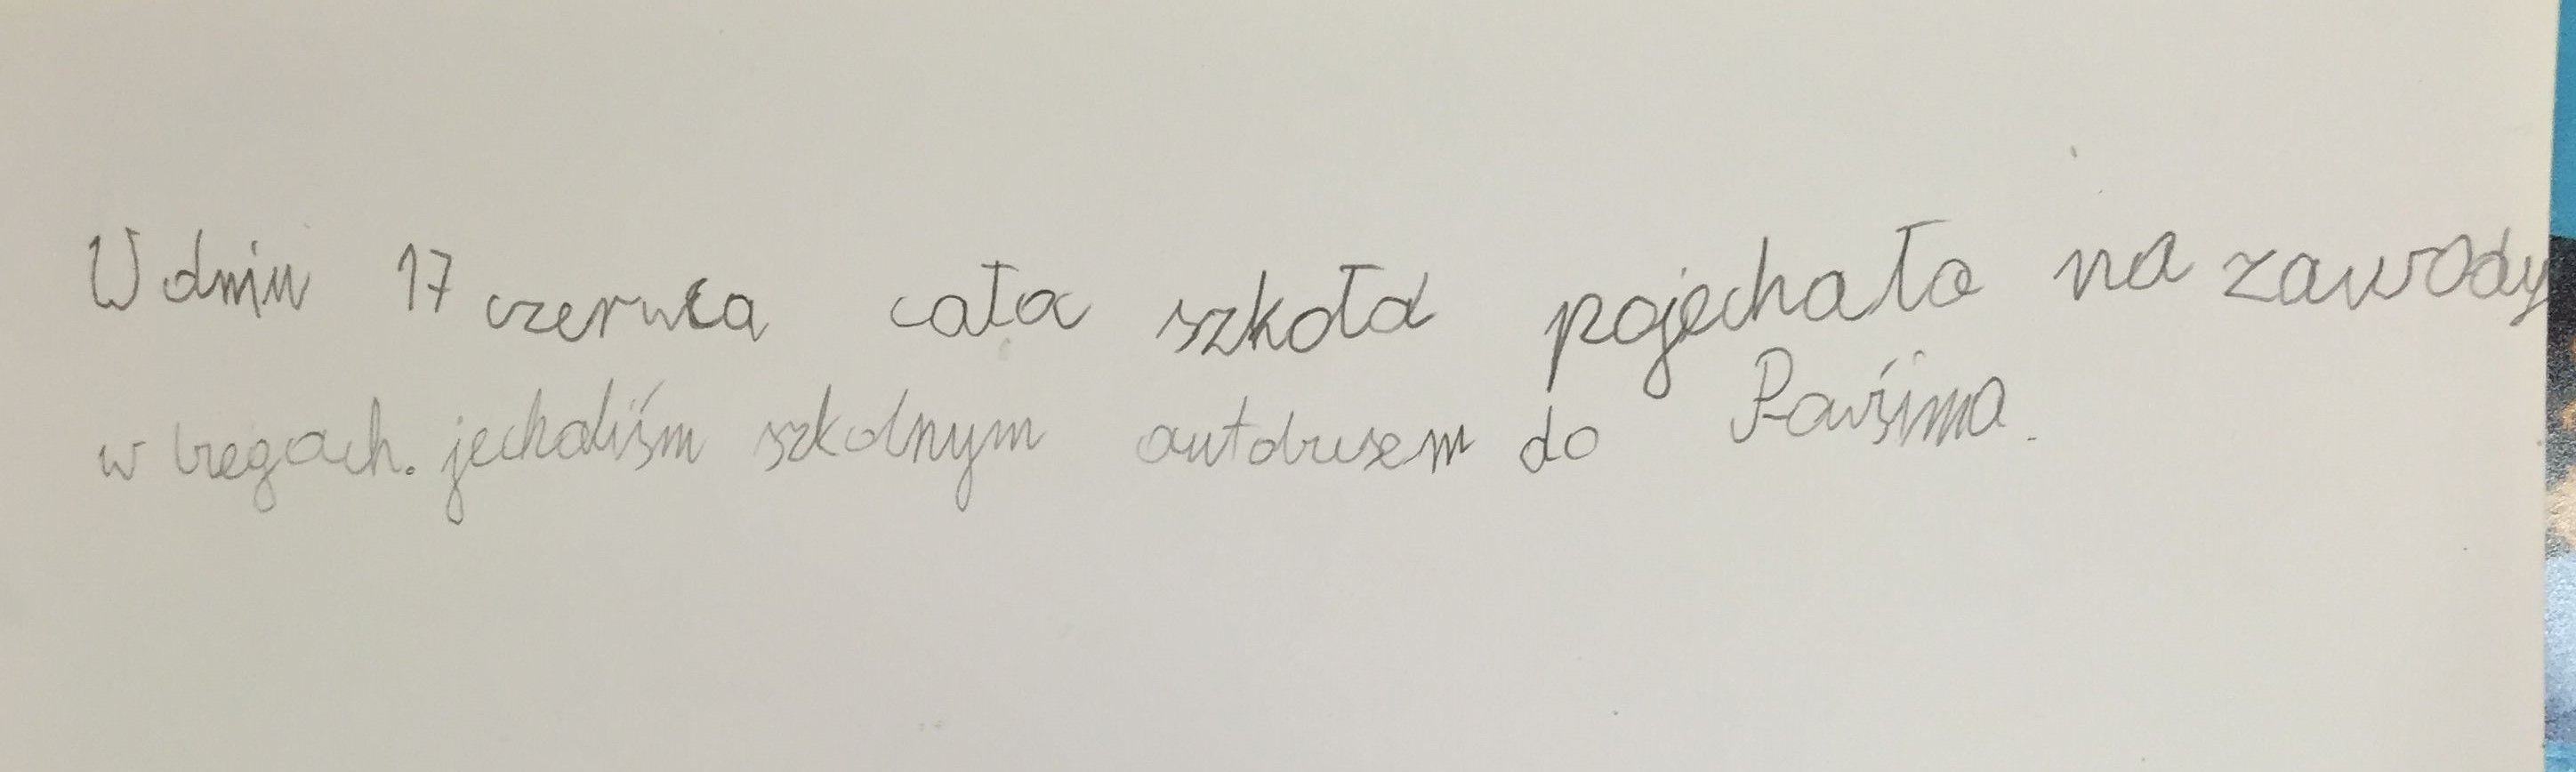 W dniu 17 czerwca cała szkoła pojechała na zawody
w bregach. jechaliśm szkolnym autobusem do Rawśima.